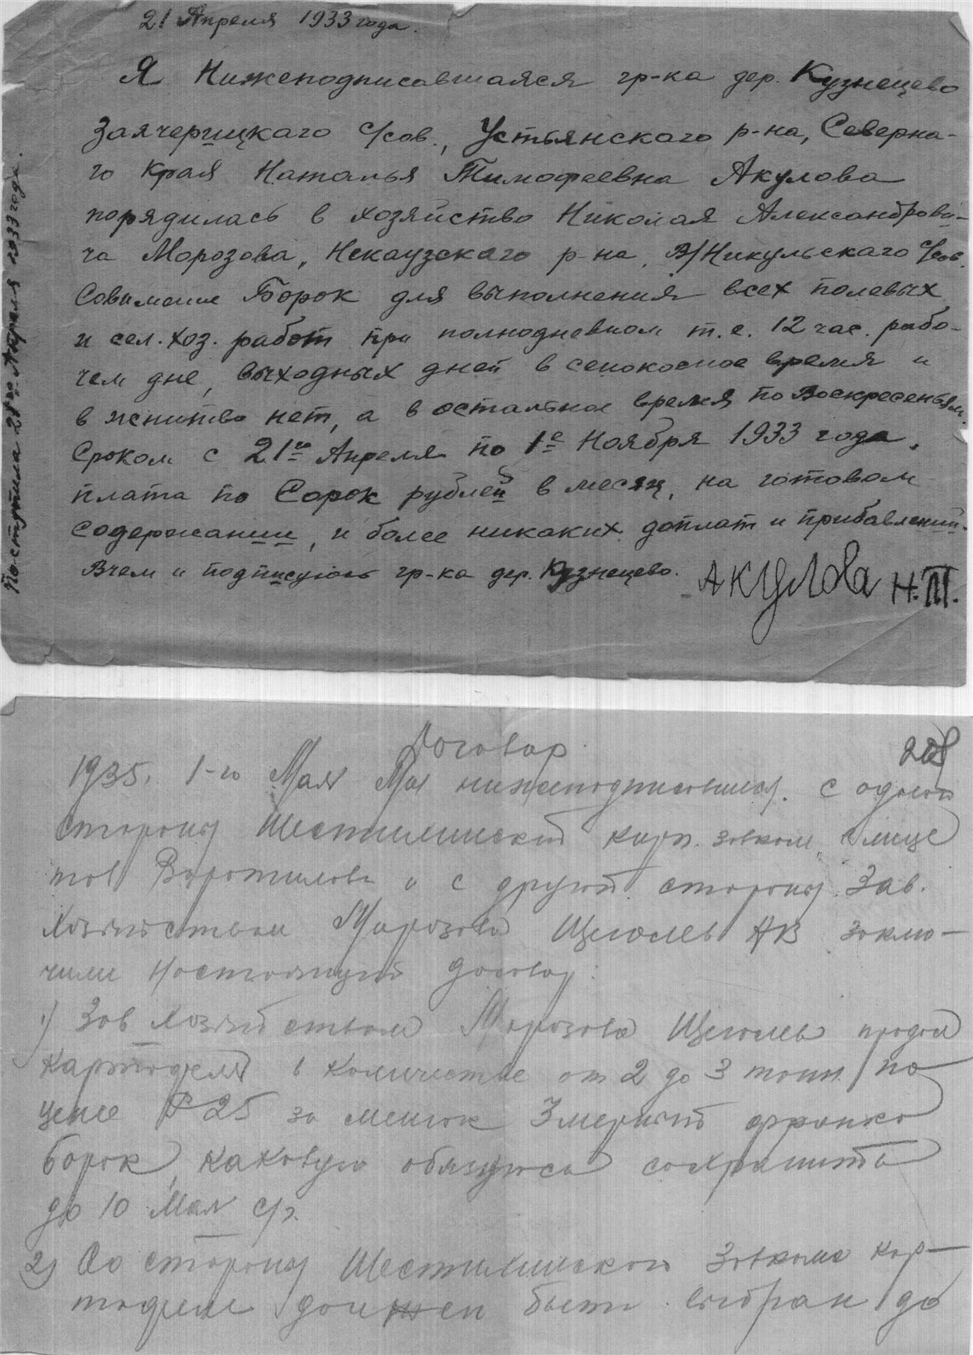 21 Апреля 1933 года.
Я Нижеподписавшаяся гр-ка дер. Кузнецево
Заячерицкаго с/сов., Устьянскаго р-на, Северна-
го Края Наталья Тимофеевна Акулова
порядилась в хозяйство Николая Александрови-
ча Морозова, Некоузскаго р-на, Никульскаго с/сов.
Борок для выполнения всех полевых
и сел. хоз. работ при полнодневном т.е. 12 час. рабо-
чем дне, выходных дней в сенокосное время и
в жнитво нет, а в остальное время по Воскресеньям.
Сроком с 21го Апреля по 1е Ноября 1933 года.
плата по Сорок рублей в месяц, на готовом
содержании, и более никаких доплат и прибавлений.
Вчем и подписуюсь гр-ка дер. Кузнецево. Акулова Н.Т.
Поступила 21го Апреля 1933 года.
Договор
1935. 1-го Мая Мы нижеподписавшиеся. с одной
стороны Шестихинский завком, в лице
тов Воротилова и с другой стороны Зав.
Хозяйством Морозова Щеголев АВ заклю-
чили настоящий договор:
1) Зав Хозяйством Морозова Щеголев продал
Картофеля в количестве от 2 до 3 тонн по
цене Р 25 за мешок 3 мерный франко
борок, каковую обязуюсь сохранить
до 10 Мая с/г.
2) Со стороны Шестихинского Завкома кар-
тофель должен быть до